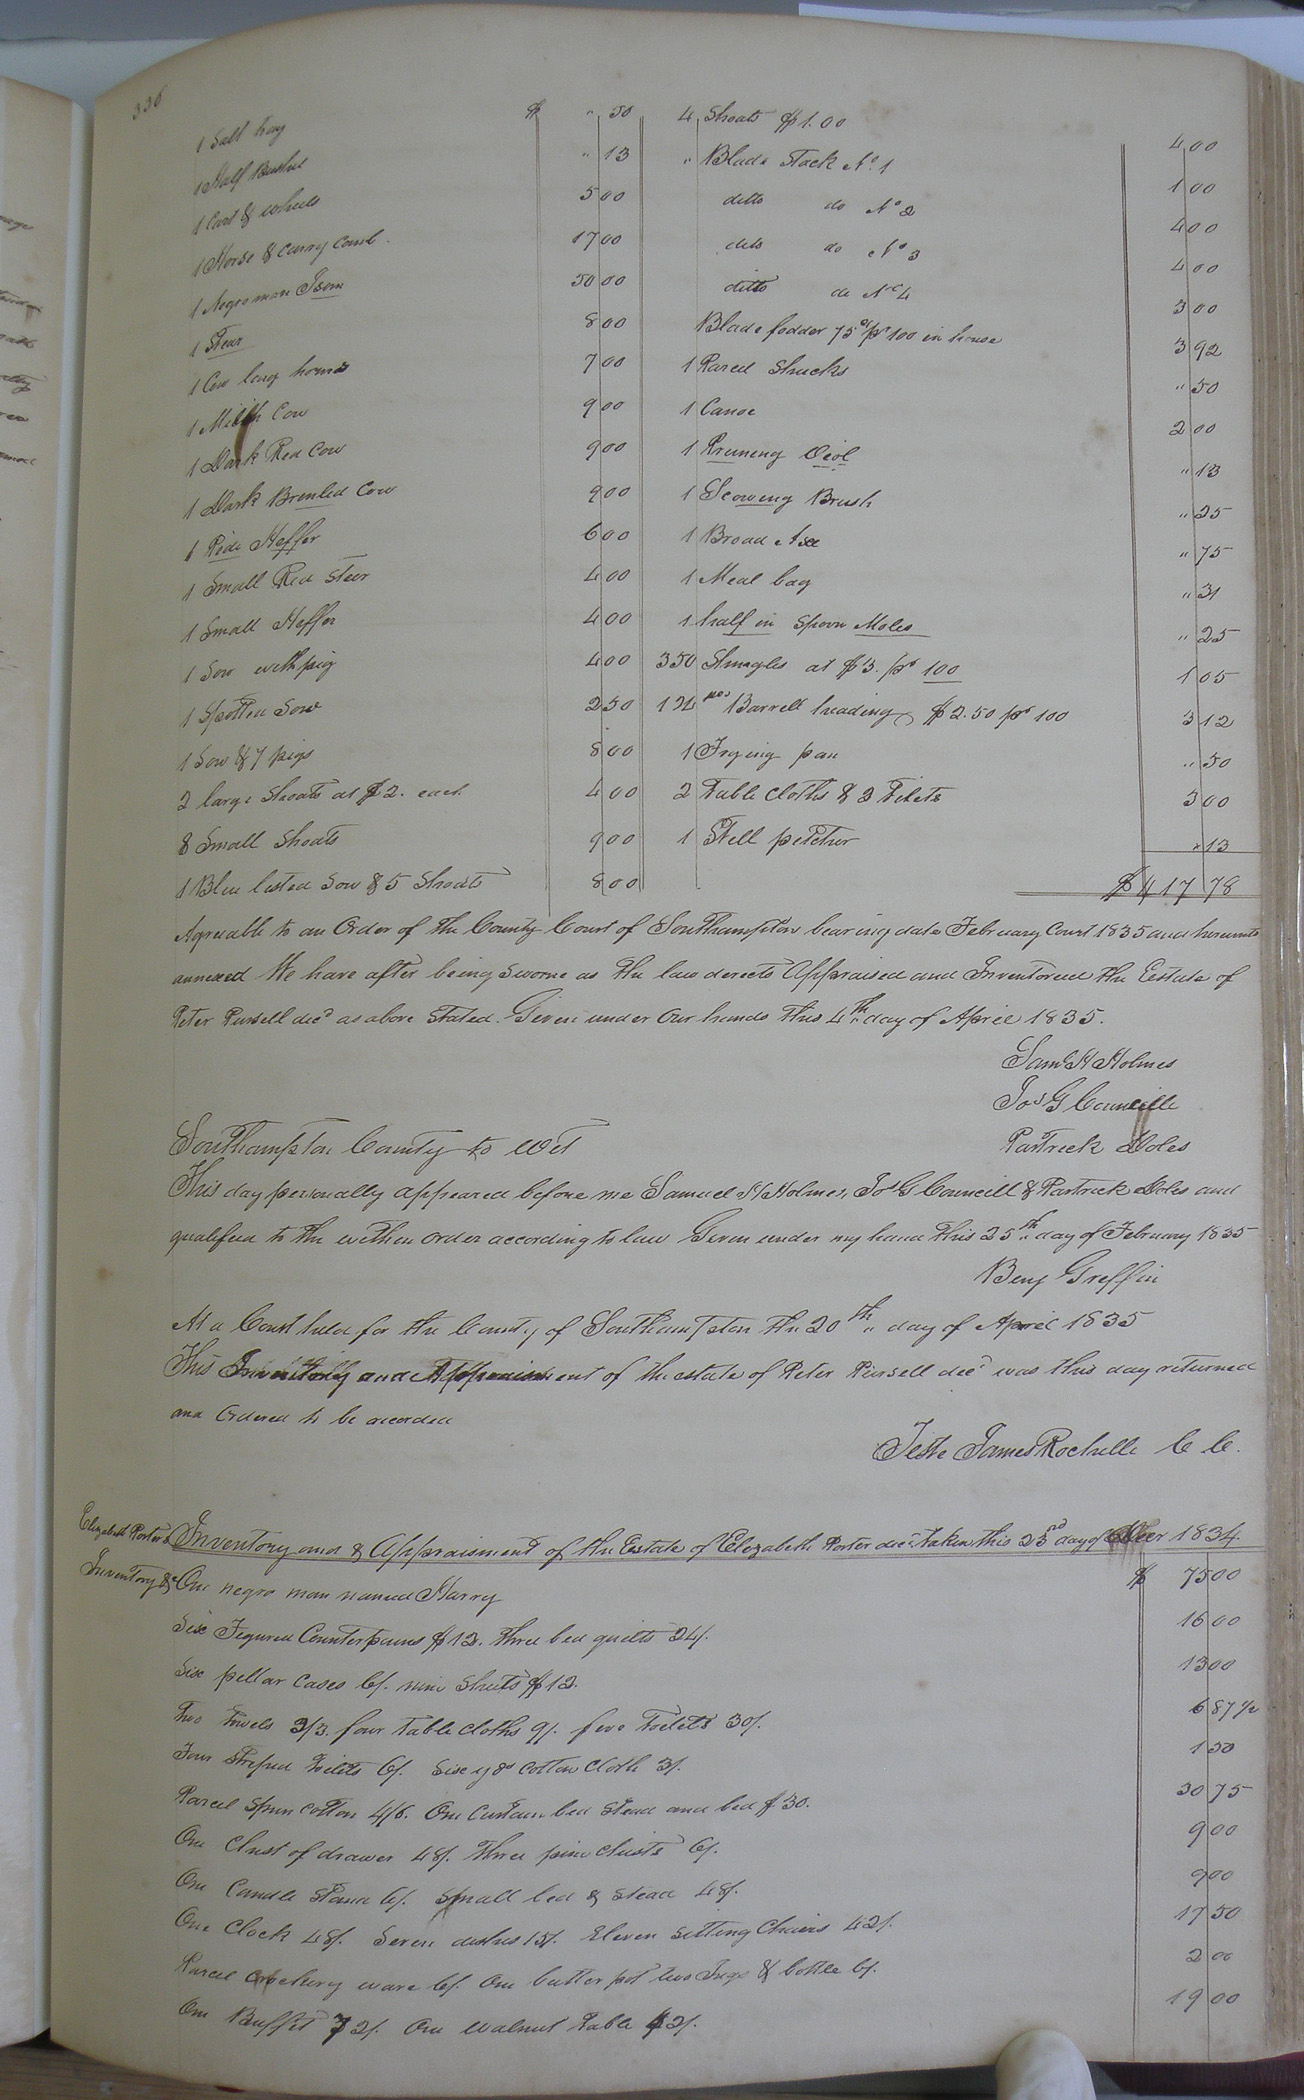 336
1 Salt bag $ " 50
1 Half Bushel " 13
1 Cart & wheels 5 00
1 Horse & Curry Comb 17 00
1 Negro man Isom 50 00
1 Stear 8 00
1 Cow long horns 7 00
1 Milch Cow 9 00
1 Dark Red Cow 9 00
1 Dark Brenled Cow 9 00
1 Pide Heffer 6 00
1 Small Red Steer 4 00
1 Small Heffer 4 00
1 Sow with pig 4 00
1 Spotted Sow 2 50
1 Sow & 7 pigs 8 00
2 large Shoats at $2. each 4 00
8 Small Shoats 9 00
1 Blue listed Sow & 5 Shoats 8 00
4 Shoats $1.00 4 00
" Blade Stack No. 1 1 00
ditto do No 2 4 00
ditto do No 3 4 00
ditto do No 4 3 00
Blade fodder 75 cts pr 100 in house 3 92
1 Parcel Shucks " 50
1 Canoe 2 00
1 Pruneng " 13
1 Scowing Brush " 25
1 Broad Axe " 75
1 Meal bag " 31
1 half in Spoon Moles " 25
350 Shingles at $3. pr 100 1 05
Barrell heading $2.50 pr 100 3 12
1 Frying pan " 50
2 Table Cloths & 3 Tilets 3 00
1 Still petcher " 13
$417 78
Agreeable to an Order of the County Court of Southampton bearing date February Court 1835 and hereunto
annexed We have after being Sworne as the law derects Appraised and Inventored the Eestate of
Peter Pursell decd as above Stated. Given under Our hands this 4th day of April 1835.
Saml H Holmes
Jos G Councille
Partreck Doles
Southampton County to Wit
This day personally appeared before me Samuel H Holmes, Jos G Councill & Partreck Doles and
qualifeed to the within order according to law Given under my hand this 25th day of February 1835
Benj Greffin
At a Court held for the County of Southampton the 20th day of April 1835
This Inventory and Appraisement of the estate of Peter Pursell decd was this day returned
and Ordered to be recorded
Teste James Rochelle C C.
Elizabeth Porter's
Inventory &c
Inventory and & Appraisment of the Estate of Elezabeth Porter decd taken this 23rd day of Decer 1834
One negro man named Harry $ 75 00
Six Figured Counterpains $12. three bed quilts 24/. 16 00
Six pellar Cases 6/. nine Sheets $12. 13 00
Two towels 2/3. four table Cloths 9/. five toilets 30/. 6 87 1/2
Four Striped toilets 6/. Six yds Cotton Cloth 3/. 1 50
Parcel Spun Cotton 4/6. One Curtain bed Stead and bed $30. 30 75
One Chest of drawer 48/. three pine Chests 6/. 9 00
One Candle Stand 6/. Small bed & Stead 48/. 9 00
One Clock 48/. Seven dishes 15/. Eleven Setting Chairs 42/. 17 50
Parcel Crockery ware 6/. One butter pot two Jugs & bottle 6/. 2 00
One Buffet 72/. One walnut table 42/. 19 00